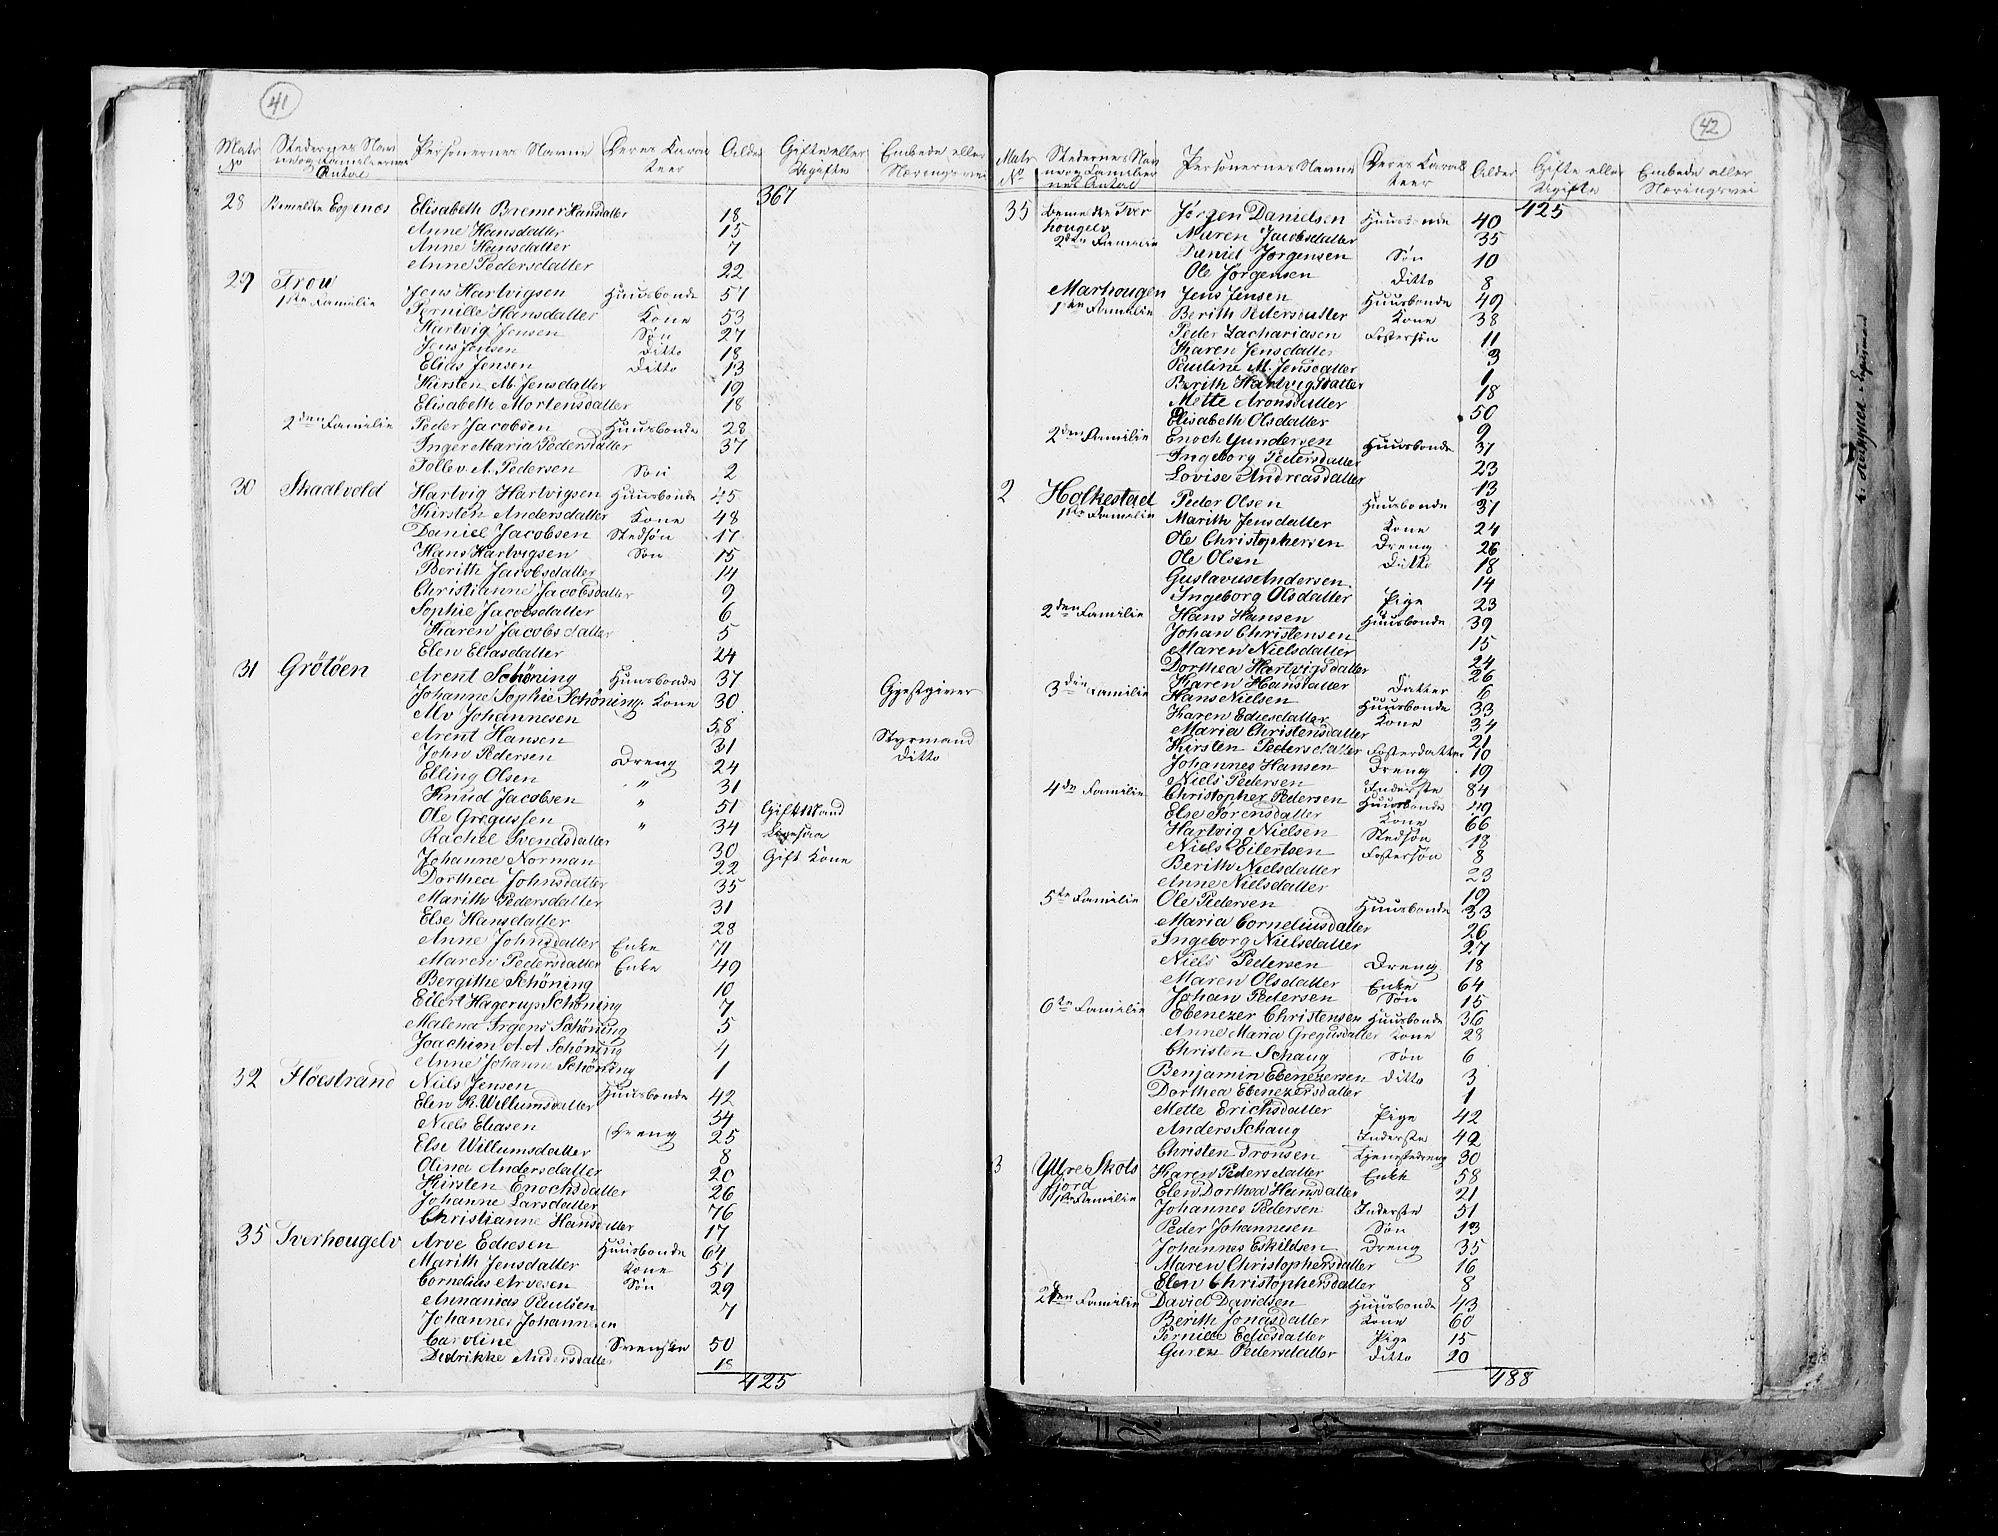 41
Matr No | Stedernes Navn og Familiernes Antal | Personernes Navne | Deres Karakteer | Alder | Gifte eller Ugifte | Embede eller Næringsvei
367
28 Bemeldte Espenes Elisabeth Bremer Hansdatter 18
Anne Hansdatter 15
Anne Hansdatter 7
Anne Pedersdatter 22
29 Trou
1ste Familie Jens Hartvigsen Huusbonde 57
Pernille Hansdatter Kone 53
Hartvig Jensen Søn 27
Jens Jensen Ditto 18
Elias Jensen Ditto 13
Kirsten M. Jensdatter 19
Elisabeth Mortensdatter 18
2den Familie Peder Jacobsen Huusbonde 28
Inger Maria Pedersdatter 37
Tollev A. Pedersen Søn 2
30 Skaalvold Hartvig Hartvigsen Huusbonde 45
Kirsten Andersdatter Kone 48
Daniel Jacobsen Stedsøn 17
Hans Hartvigsen Søn 15
Berith Jacobsdatter 14
Christianne Jacobsdatter 9
Sophie Jacobsdatter 6
Karen Jacobsdatter 5
Elen Eliasdatter 24
31 Grötöen Arent Schöning Huusbonde 37
Johanne Sophie Schöning Kone 30 Gjestgiver
Mv Johannesen 58
Arent Hansen 31 Styrmand
John Pedersen Dreng 24 Ditto
Elling Olsen " 31
Knud Jacobsen " 51 Gift Mand
Ole Gregussen " 34 Ligesaa
Rachel Svendsdatter 30 Gift Kone
Johanne Norman 22
Dorthea Johnsdatter 35
Marith Pedersdatter 31
Else Hansdatter 28
Anne Johnsdatter Enke 71
Maren Pedersdatter Enke 49
Bergithe Schöning 10
Eilert Hagerup Schöning 7
Malena Irgens Schöning 5
Joachim A. A Schöning 4
Anne Johanne Schöning 1
32 Flöestrand Niels Jensen Huusbonde 42
Elen R. Willumsdatter 54
Niels Eliasen Dreng 25
Else Willumsdatter 8
Olina Andersdatter 20
Kirsten Enochsdatter 26
Johanne Larsdatter 76
Christianne Hansdatter 17
35 Tverhougelv Arve Ediesen Huusbonde 64
Marith Jensdatter Kone 51
Cornelius Arvesen Søn 29
Annanias Paulsen 7
Johannes Johannsen
Caroline Svenske 50
Didrikke Andersdatter 18
425
42
Matr No | Stedernes Navn og Familiernes Antal | Personernes Navne | Deres Karakteer | Alder | Gifte eller Ugifte | Embede eller Næringsvei
425
35 Bemeldte Tverhougelv
2den Familie Jørgen Danielsen Huusbonde 40
Maren Jacobsdatter 35
Daniel Jørgensen Søn 10
Ole Jørgensen Ditto 8
Marhougen
1ste Familie Jens Jensen Huusbonde 49
Berith Pedersdatter Kone 38
Peder Zachariasen Fostersøn 11
Karen Jensdatter 3
Pauline M. Jensdatter 1
Berith Hartvigsdatter 18
Mette Aronsdatter 50
Elisabeth Olsdatter 9
2den Familie Enoch Gundersen Huusbonde 37
Ingeborg Pedersdatter 23
Lovise Andreasdatter 13
2 Holkestad
1ste Familie Peder Olsen Huusbonde 31
Marith Jensdatter Kone 24
Ole Christophersen Dreng 26
Ole Olsen Ditto 18
Gustavus Andersen 14
Ingeborg Olsdatter Pige 23
2den Familie Hans Hansen Huusbonde 39
Johan Christensen 15
Maren Nielsdatter 24
Dorthea Hartvigsdatter 26
Karen Hansdatter Datter 6
3die Familie Hans Nielsen Huusbonde 33
Karen Ediesdatter Kone 34
Maria Christensdatter 21
Kirsten Pedersdatter Fosterdatter 10
Johannes Hansen Dreng 19
Niels Pedersen Inderste 84
4de Familie Christopher Pedersen Huusbonde 49
Else Sorensdatter Kone 66
Hartvig Nielsen Stedsøn 18
Niels Eilertsen Fostersøn 8
Berith Nielsdatter 23
Anne Nielsdatter 19
5te Familie Ole Pedersen Huusbonde 33
Maria Corneliusdatter 26
Ingeborg Nielsdatter 27
Niels Pedersen Dreng 18
Maren Olsdatter Enke 64
Johan Pedersen Søn 15
6te Familie Ebenezer Christensen Huusbonde 36
Anne Maria Gregusdatter Kone 28
Christen Schaug Søn 6
Benjamin Ebenezersen Ditto 3
Dorthea Ebenezersdatter 1
Mette Erichsdatter Pige 42
Anders Schaug Inderste 42
Christen Tronsen Tjenestedreng 30
3 Yttre Skotsfjord
1ste Familie Karen Pedersdatter Enke 58
Elen Dorthea Hansdatter 21
Johannes Pedersen Inderste 51
Peder Johannesen Søn 13
Johannes Eskildsen Dreng 35
Maren Christophersdatter 16
Elen Christophersdatter 8
2den Familie David Davidsen Huusbonde 43
Berith Jonasdatter Kone 60
Pernille Ediesdatter Pige 15
Guren Pedersdatter Ditto 20
488